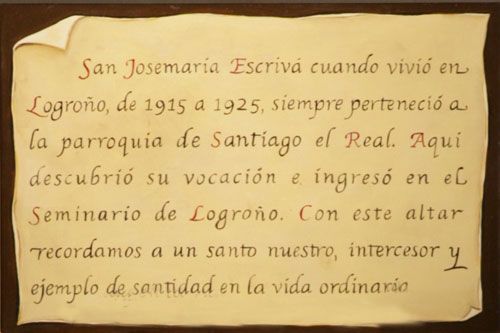 San Josemaría Escrivá cuando vivió en
Logroño, de 1915 a 1925, siempre perteneció a
la parroquia de Santiago el Real. Aquí
descubrió su vocación e ingresó en el
Seminario de Logroño. Con este altar
recordamos a un santo nuestro, intercesor y
ejemplo de santidad en la vida ordinaria